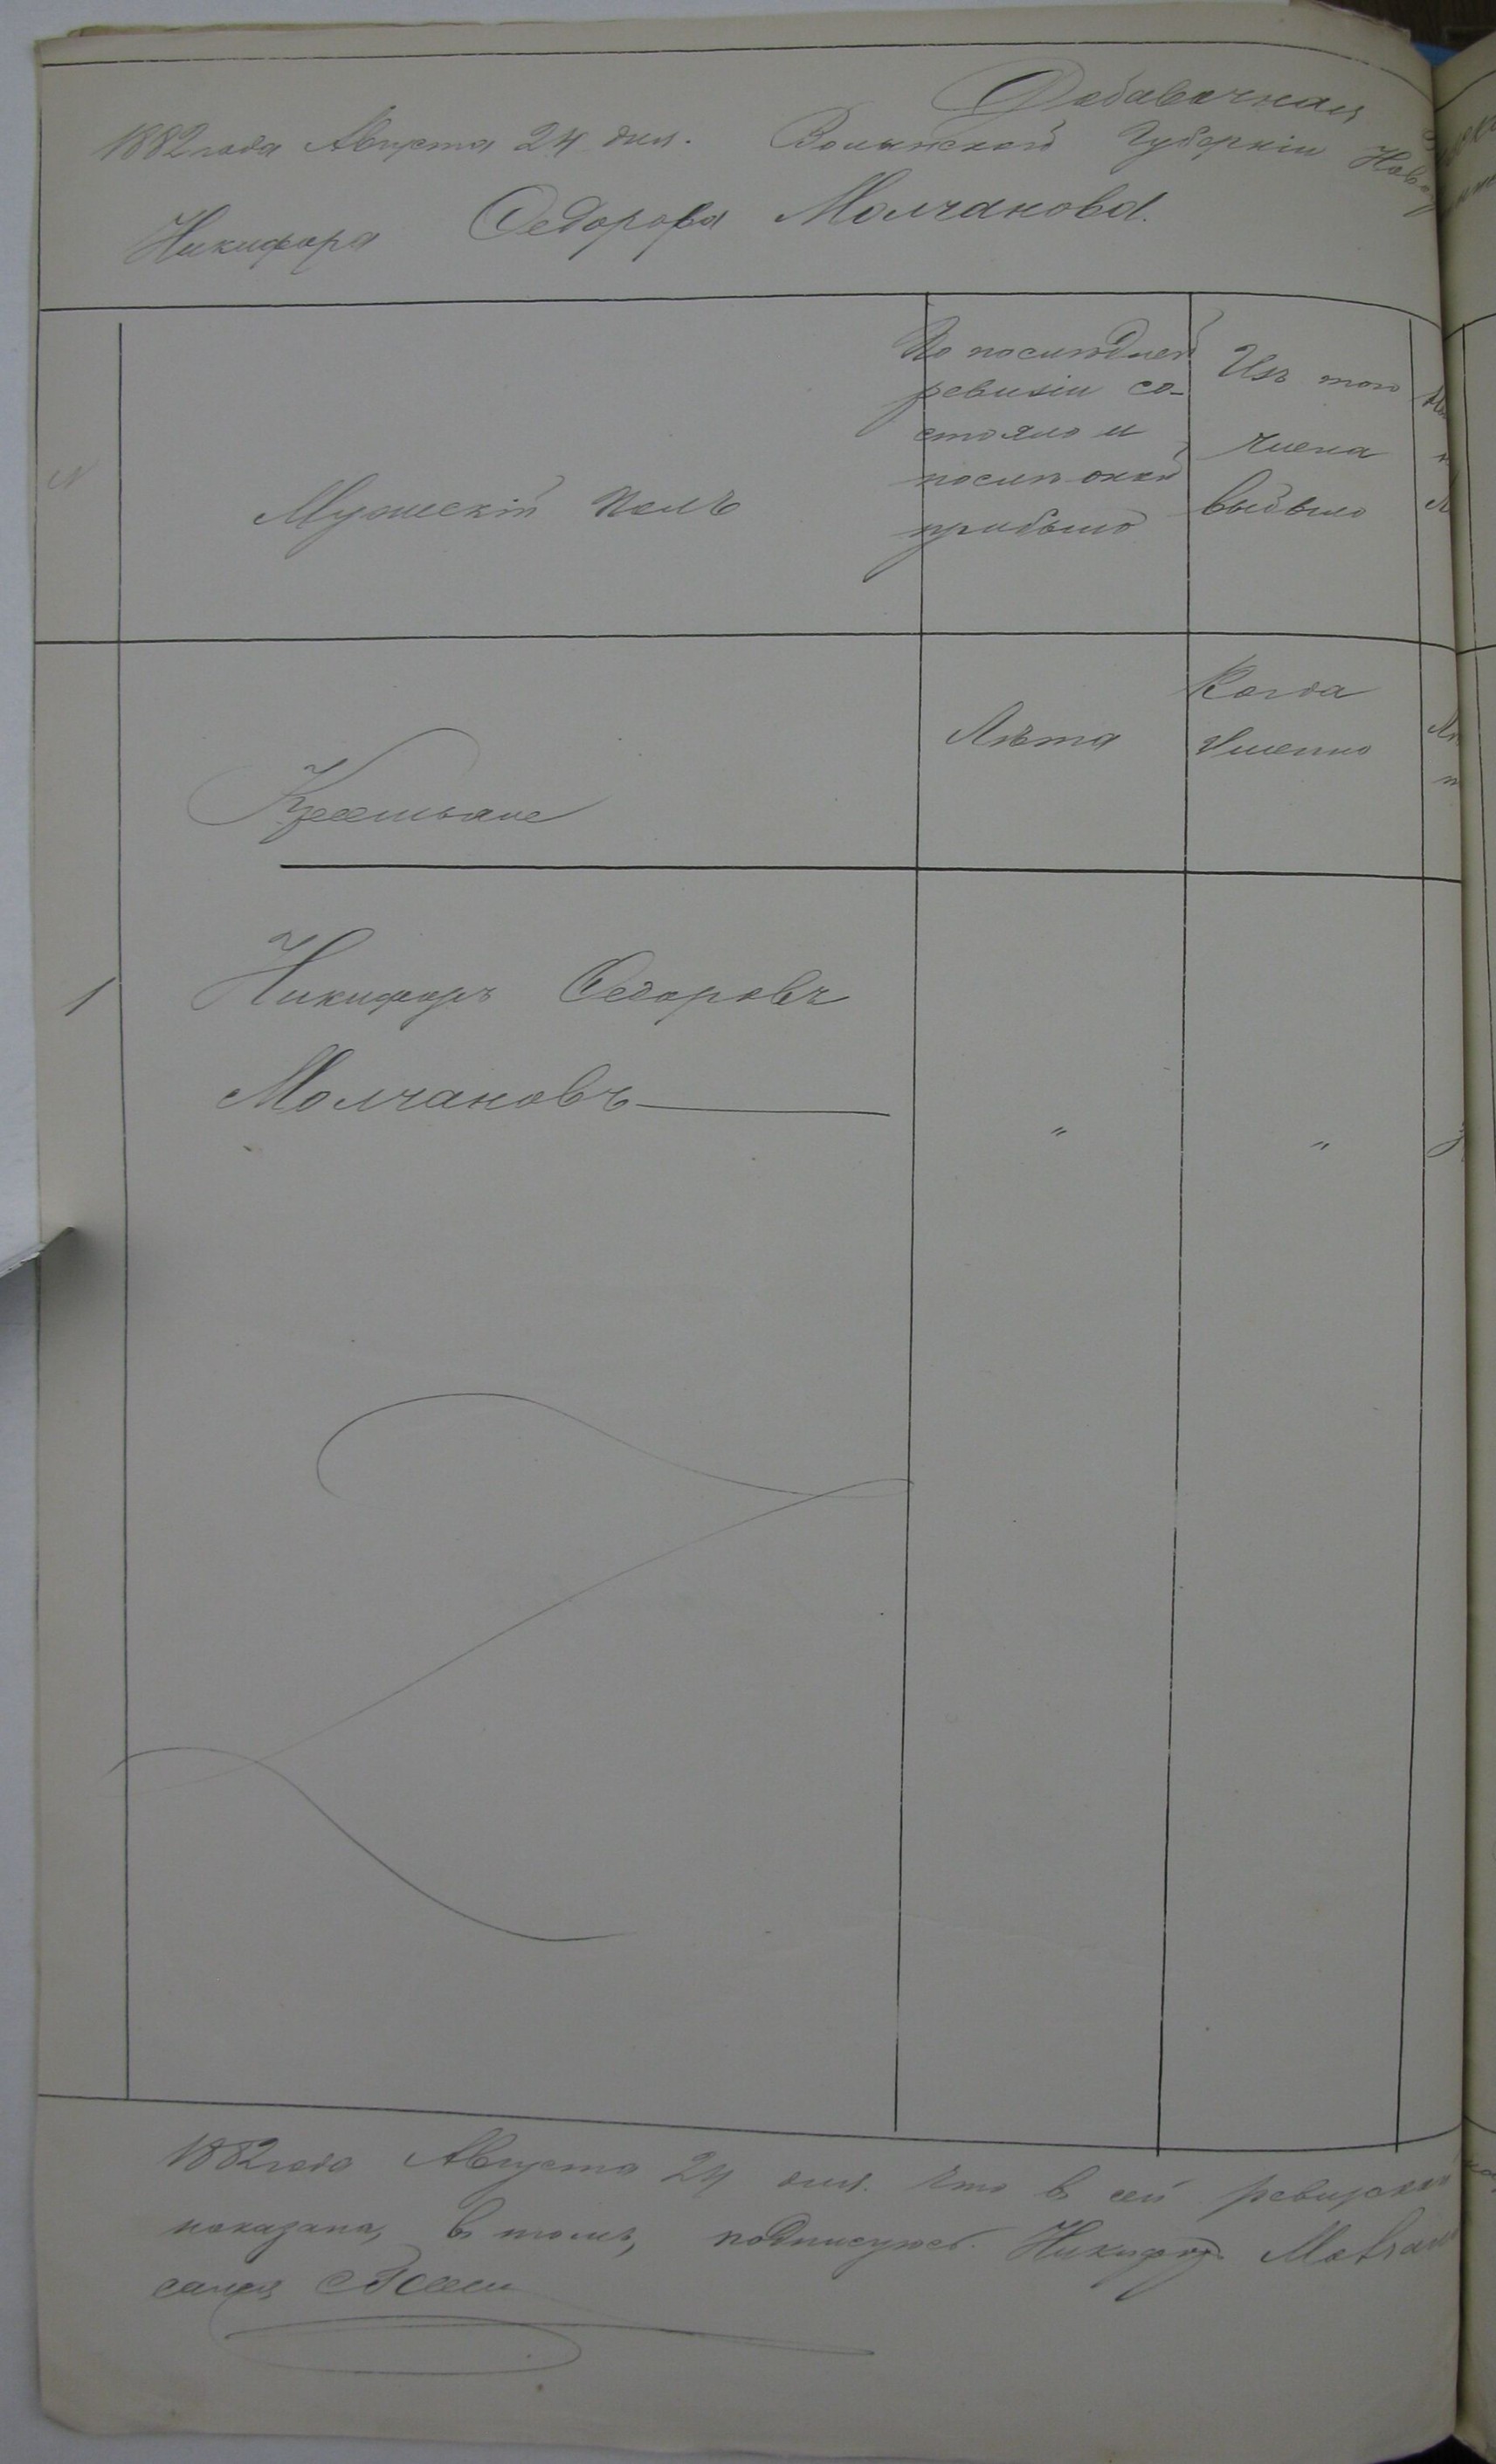 Добавочная
1882 года Августа 24 дня. Волынской Губерніи Новог
Никифора Федорова Молчанова.
N
Мужескій Полъ
По послѣдней
ревизіи со-
стояло и
послѣ оной
прибыло
Изъ того
числа
выбыло
Крестьяне
Лѣта
Когда
Именно
1
Никифоръ Федоровъ
Молчановъ
"
"
1882 года Августа 24 дня. Что в сей ревизской
показана, в томъ, подписуюсь. Никифоръ